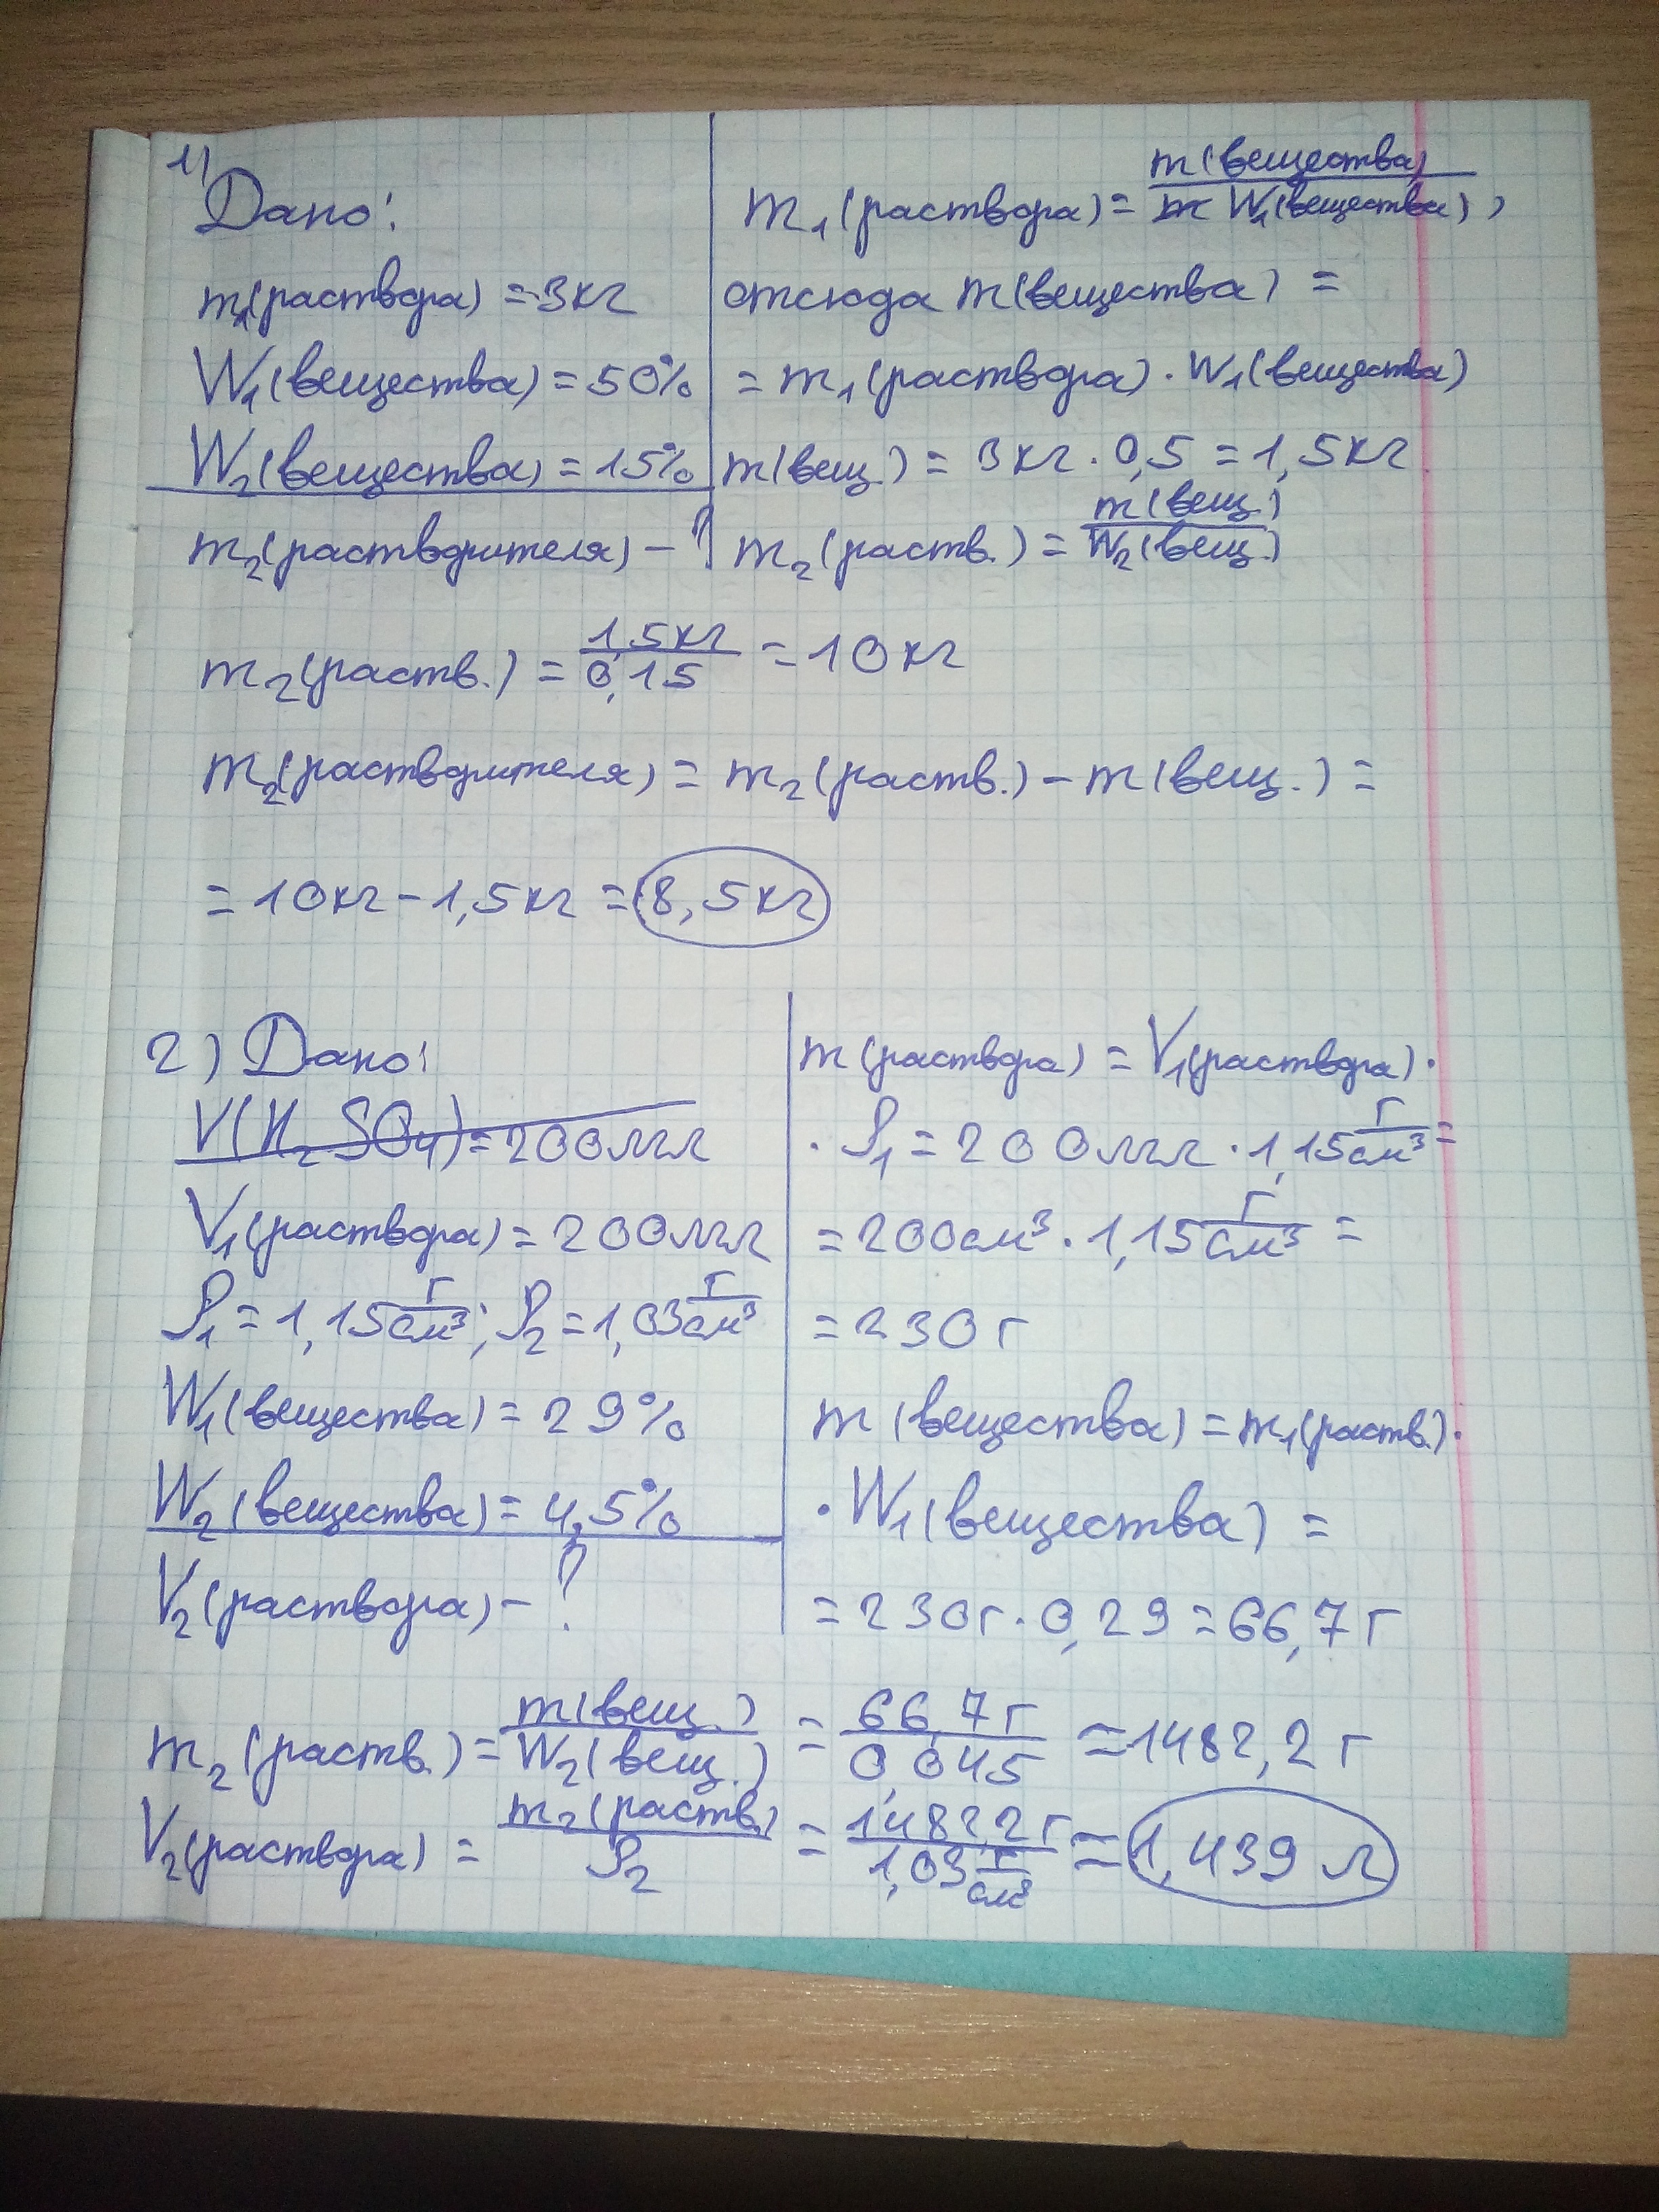 1)
Дано:
m₁(раствора) = 3кг
W₁(вещества) = 50%
W₂(вещества) = 15%
m₂(растворителя) – ?
m₁(раствора) = m(вещества) / W₁(вещества),
отсюда m(вещества) =
= m₁(раствора) · W₁(вещества)
m(вещ.) = 3кг · 0,5 = 1,5кг
m₂(раств.) = m(вещ.) / W₂(вещ.)
m₂(раств.) = 1,5кг / 0,15 = 10кг
m₂(растворителя) = m₂(раств.) – m(вещ.) =
= 10кг – 1,5кг = 8,5кг
2) Дано:
V(H₂SO₄) = 200мл
V₁(раствора) = 200мл
ρ₁ = 1,15 г/см³; ρ₂ = 1,03 г/см³
W₁(вещества) = 29%
W₂(вещества) = 4,5%
V₂(раствора) – ?
m(раствора) = V₁(раствора) ·
· ρ₁ = 200мл · 1,15 г/см³ =
= 200см³ · 1,15 г/см³ =
= 230 г
m(вещества) = m₁(раств.) ·
· W₁(вещества) =
= 230г · 0,29 = 66,7 г
m₂(раств.) = m(вещ.) / W₂(вещ.) = 66,7г / 0,045 ≈ 1482,2 г
V₂(раствора) = m₂(раств.) / ρ₂ = 1482,2 г / 1,03 г/см³ ≈ 1,439 л